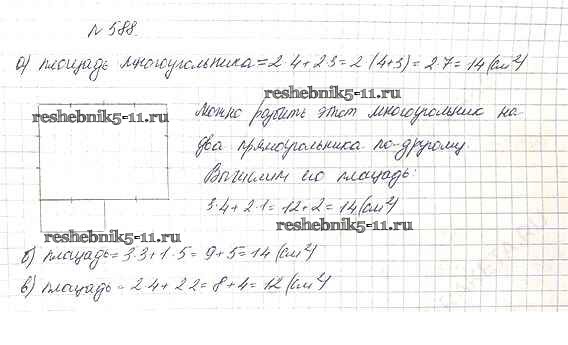 № 588
а) площадь многоугольника = 2·4 + 2·3 = 2·(4+3) = 2·7 = 14 (см²)
reshebnik5-11.ru
reshebnik5-11.ru
Можно разбить этот многоугольник на
два прямоугольника по-другому.
Вычислим его площадь:
3·4 + 2·1 = 12 + 2 = 14 (см²)
reshebnik5-11.ru
б) площадь = 3·3 + 1·5 = 9 + 5 = 14 (см²)
в) площадь = 2·4 + 2·2 = 8 + 4 = 12 (см²)
reshebnik5-11.ru